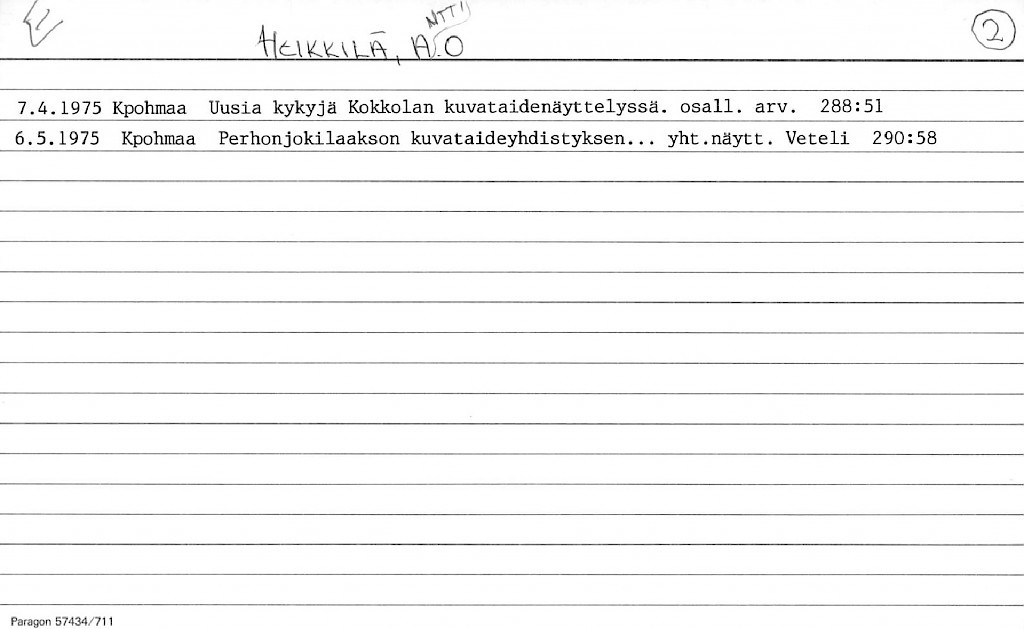 NTTI
HEIKKILÄ, A.O
2
7.4.1975 Kpohmaa Uusia kykyjä Kokkolan kuvataidenäyttelyssä. osall. arv. 288:51
6.5.1975 Kpohmaa Perhonjokilaakson kuvataideyhdistyksen... yht.näytt. Veteli 290:58
Paragon 57434/711